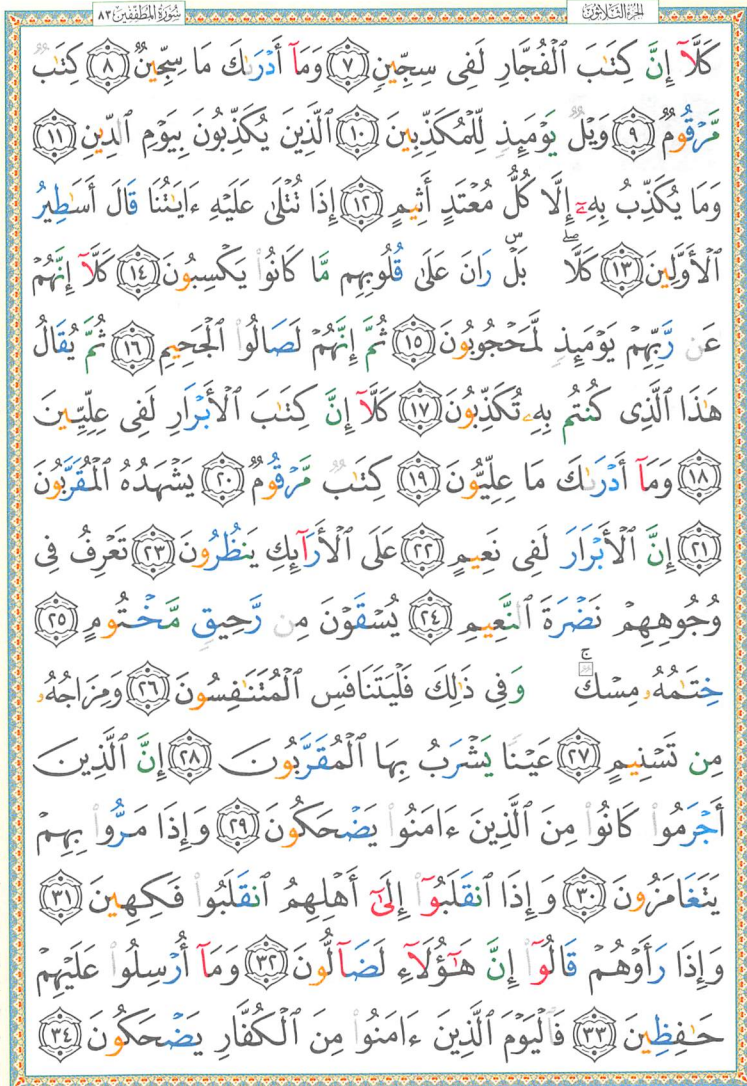 الجزء الثلاثون
سورة المطففين ٨٣
كَلَّآ إِنَّ كِتَٰبَ ٱلْفُجَّارِ لَفِى سِجِّينٍ ٧ وَمَآ أَدْرَىٰكَ مَا سِجِّينٌ ٨ كِتَٰبٌ
مَّرْقُومٌ ٩ وَيْلٌ يَوْمَئِذٍ لِّلْمُكَذِّبِينَ ١٠ ٱلَّذِينَ يُكَذِّبُونَ بِيَوْمِ ٱلدِّينِ ١١
وَمَا يُكَذِّبُ بِهِۦٓ إِلَّا كُلُّ مُعْتَدٍ أَثِيمٍ ١٢ إِذَا تُتْلَىٰ عَلَيْهِ ءَايَٰتُنَا قَالَ أَسَٰطِيرُ
ٱلْأَوَّلِينَ ١٣ كَلَّا ۖ بَلْ ۜ رَانَ عَلَىٰ قُلُوبِهِم مَّا كَانُوا۟ يَكْسِبُونَ ١٤ كَلَّآ إِنَّهُمْ
عَن رَّبِّهِمْ يَوْمَئِذٍ لَّمَحْجُوبُونَ ١٥ ثُمَّ إِنَّهُمْ لَصَالُوا۟ ٱلْجَحِيمِ ١٦ ثُمَّ يُقَالُ
هَٰذَا ٱلَّذِى كُنتُم بِهِۦ تُكَذِّبُونَ ١٧ كَلَّآ إِنَّ كِتَٰبَ ٱلْأَبْرَارِ لَفِى عِلِّيِّينَ
١٨ وَمَآ أَدْرَىٰكَ مَا عِلِّيُّونَ ١٩ كِتَٰبٌ مَّرْقُومٌ ٢٠ يَشْهَدُهُ ٱلْمُقَرَّبُونَ
٢١ إِنَّ ٱلْأَبْرَارَ لَفِى نَعِيمٍ ٢٢ عَلَى ٱلْأَرَآئِكِ يَنظُرُونَ ٢٣ تَعْرِفُ فِى
وُجُوهِهِمْ نَضْرَةَ ٱلنَّعِيمِ ٢٤ يُسْقَوْنَ مِن رَّحِيقٍ مَّخْتُومٍ ٢٥
خِتَٰمُهُۥ مِسْكٌ ۚ وَفِى ذَٰلِكَ فَلْيَتَنَافَسِ ٱلْمُتَنَٰفِسُونَ ٢٦ وَمِزَاجُهُۥ
مِن تَسْنِيمٍ ٢٧ عَيْنًا يَشْرَبُ بِهَا ٱلْمُقَرَّبُونَ ٢٨ إِنَّ ٱلَّذِينَ
أَجْرَمُوا۟ كَانُوا۟ مِنَ ٱلَّذِينَ ءَامَنُوا۟ يَضْحَكُونَ ٢٩ وَإِذَا مَرُّوا۟ بِهِمْ
يَتَغَامَزُونَ ٣٠ وَإِذَا ٱنقَلَبُوٓا۟ إِلَىٰٓ أَهْلِهِمُ ٱنقَلَبُوا۟ فَكِهِينَ ٣١
وَإِذَا رَأَوْهُمْ قَالُوٓا۟ إِنَّ هَٰٓؤُلَآءِ لَضَآلُّونَ ٣٢ وَمَآ أُرْسِلُوا۟ عَلَيْهِمْ
حَٰفِظِينَ ٣٣ فَٱلْيَوْمَ ٱلَّذِينَ ءَامَنُوا۟ مِنَ ٱلْكُفَّارِ يَضْحَكُونَ ٣٤